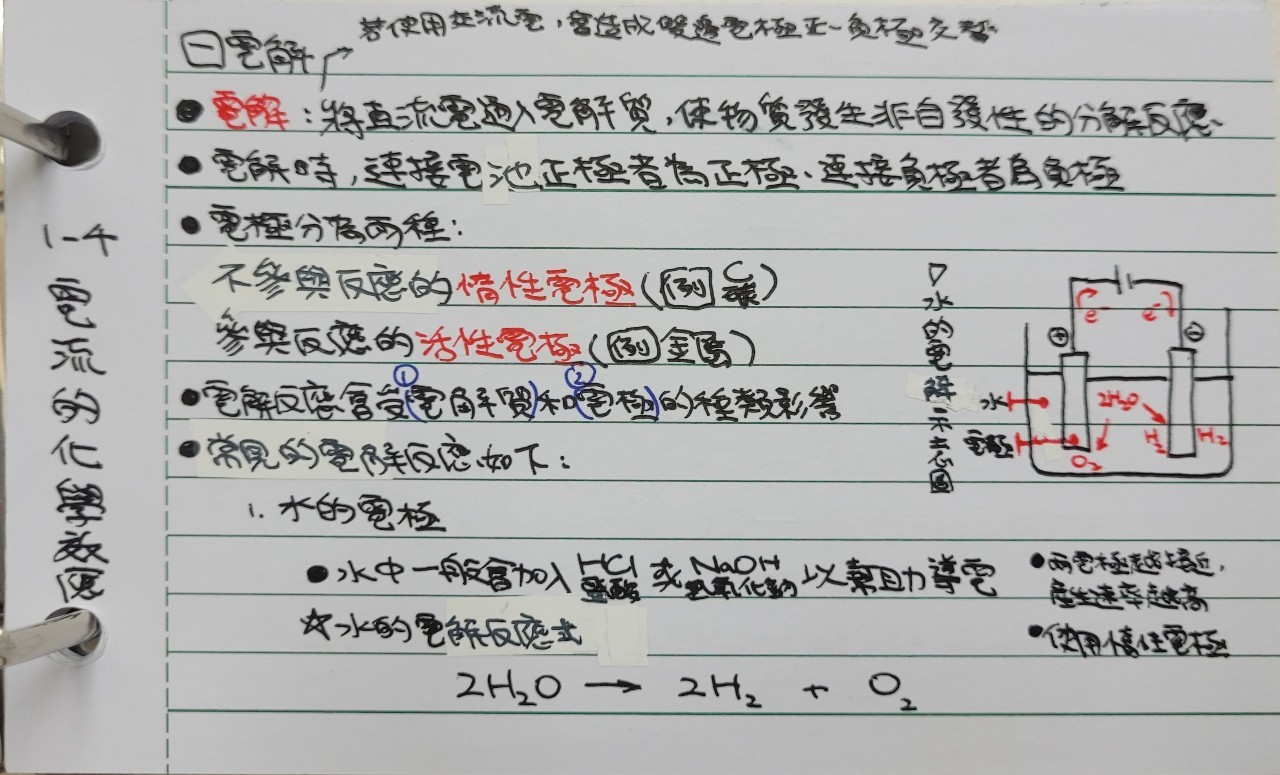 1-4 電流的化學效應
㊀電解
若使用交流電，會造成雙邊電極正、負極交替
●電解：將直流電通入電解質，使物質發生非自發性的分解反應
●電解時，連接電池正極者為正極、連接負極者為負極
●電極分為兩種：
不參與反應的惰性電極(例 C 碳)
參與反應的活性電極(例 金屬)
●電解反應會受①(電解質)和②(電極)的種類影響
●常見的電解反應如下：
1. 水的電極
●水中一般會加入 HCl 鹽酸 或 NaOH 氫氧化鈉 以幫助導電
☆水的電解反應式
2H₂O → 2H₂ + O₂
▽水的電解示意圖
e⁻ e⁻
⊕ ⊖
水
2H₂O
H₂ H₂
O₂
●兩電極越接近，
產生速率越高
●使用惰性電極